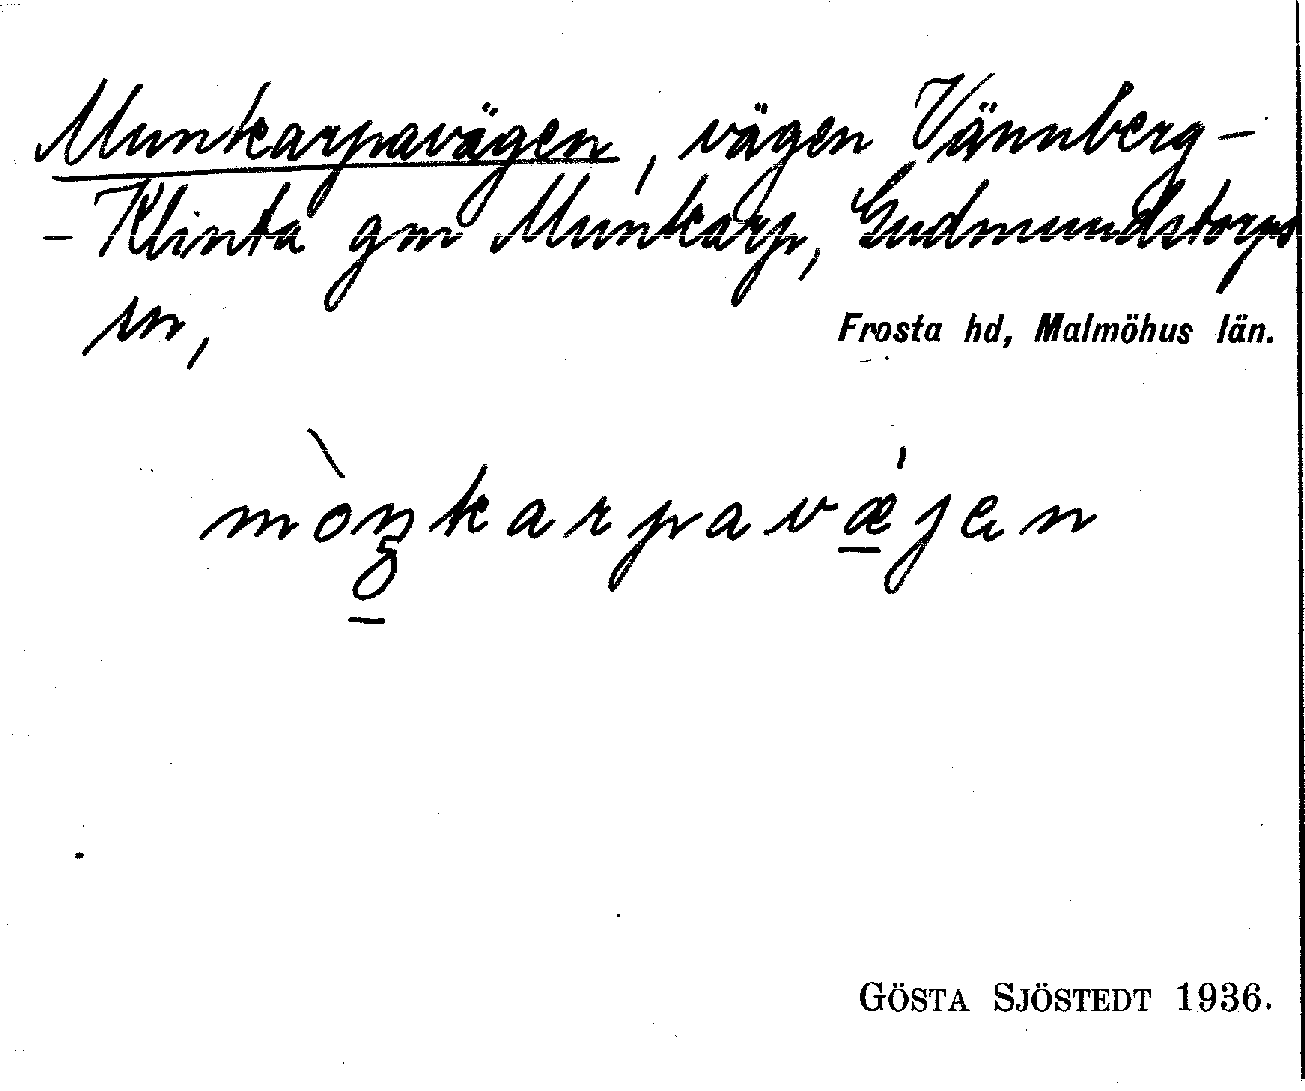 Munkarpavägen, vägen Vännberg -
- Klinta gm Munkarp, Gudmundstorps
sn,
Frosta hd, Malmöhus län.
mòŋ̲karpavǽ̲jen
GÖSTA SJÖSTEDT 1936.